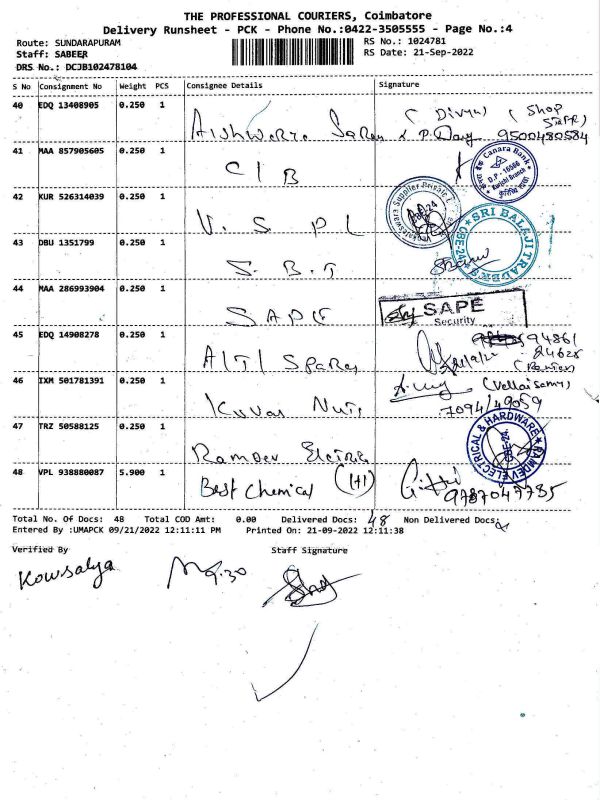 THE PROFESSIONAL COURIERS, Coimbatore
Delivery Runsheet - PCK - Phone No.:0422-3505555 - Page No.:4
Route: SUNDARAPURAM
RS No.: 1024781
Staff: SABEER
RS Date: 21-Sep-2022
DRS No.: DCJB102478104
S No Consignment No Weight PCS Consignee Details Signature
40 EDQ 13408905 0.250 1
(Divya) (Shop Staff)
9500480584
41 MAA 857905605 0.250 1
CIB
Canara Bank
D.P.-16566
42 KUR 526314039 0.250 1
V. S P L
Venkateswara Supplier Private
CBE-24
43 DBU 1351799 0.250 1
S. B. T
SRI BALAJI TRADERS
CBE-24
44 MAA 286993904 0.250 1
SAPE
SAPE
Security
45 EDQ 14908278 0.250 1
94861
24625
46 IXM 501781391 0.250 1
(Vellaisamy)
7094149059
47 TRZ 50588125 0.250 1
Ramdev Elctric
RAMDEV ELECTRICAL & HARDWARE
CBE-24.
48 VPL 938880087 5.900 1
Best Chemical (1+1)
9787047735
Total No. Of Docs: 48 Total COD Amt: 0.00 Delivered Docs: 48 Non Delivered Docs:
Entered By :UMAPCK 09/21/2022 12:11:11 PM Printed On: 21-09-2022 12:11:38
Verified By
Staff Signature
Kowsalya